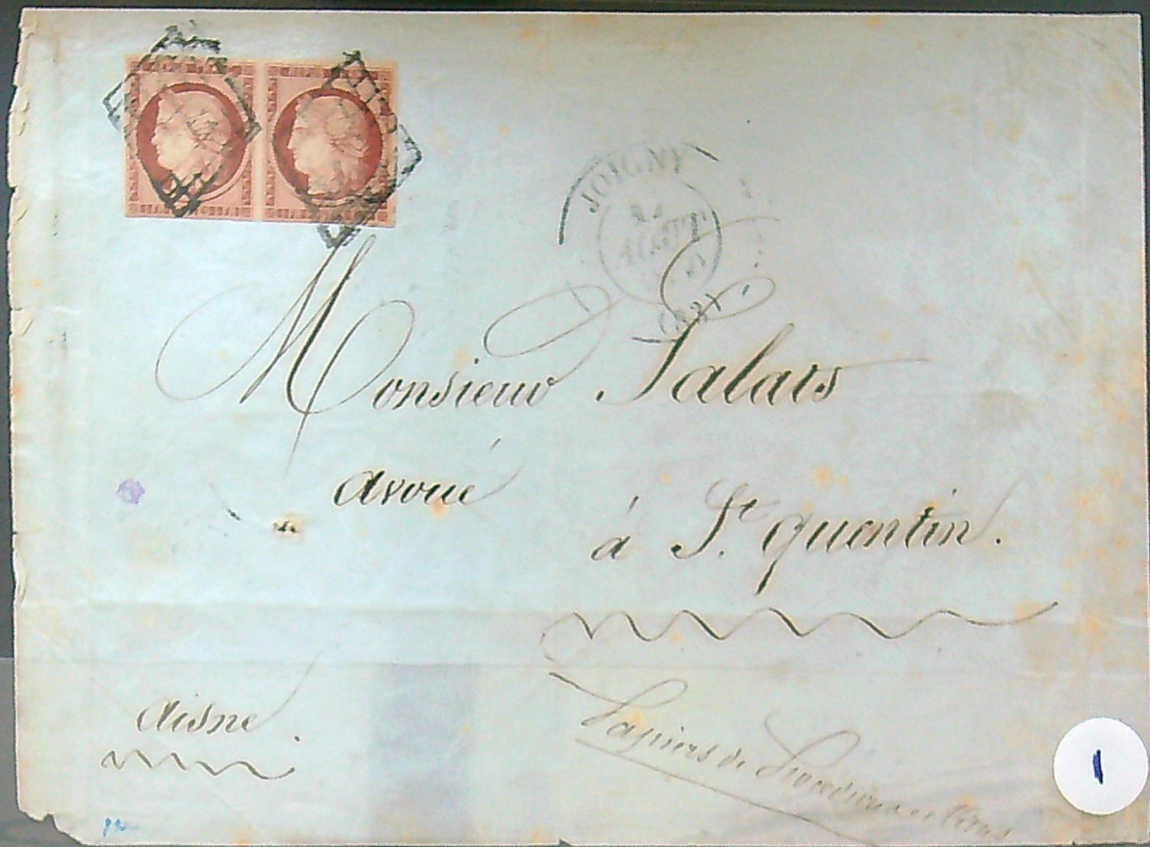 JOIGNY
AOUT
Monsieur Palais
avoué
à St. quentin.
aisne.
Papiers de
1